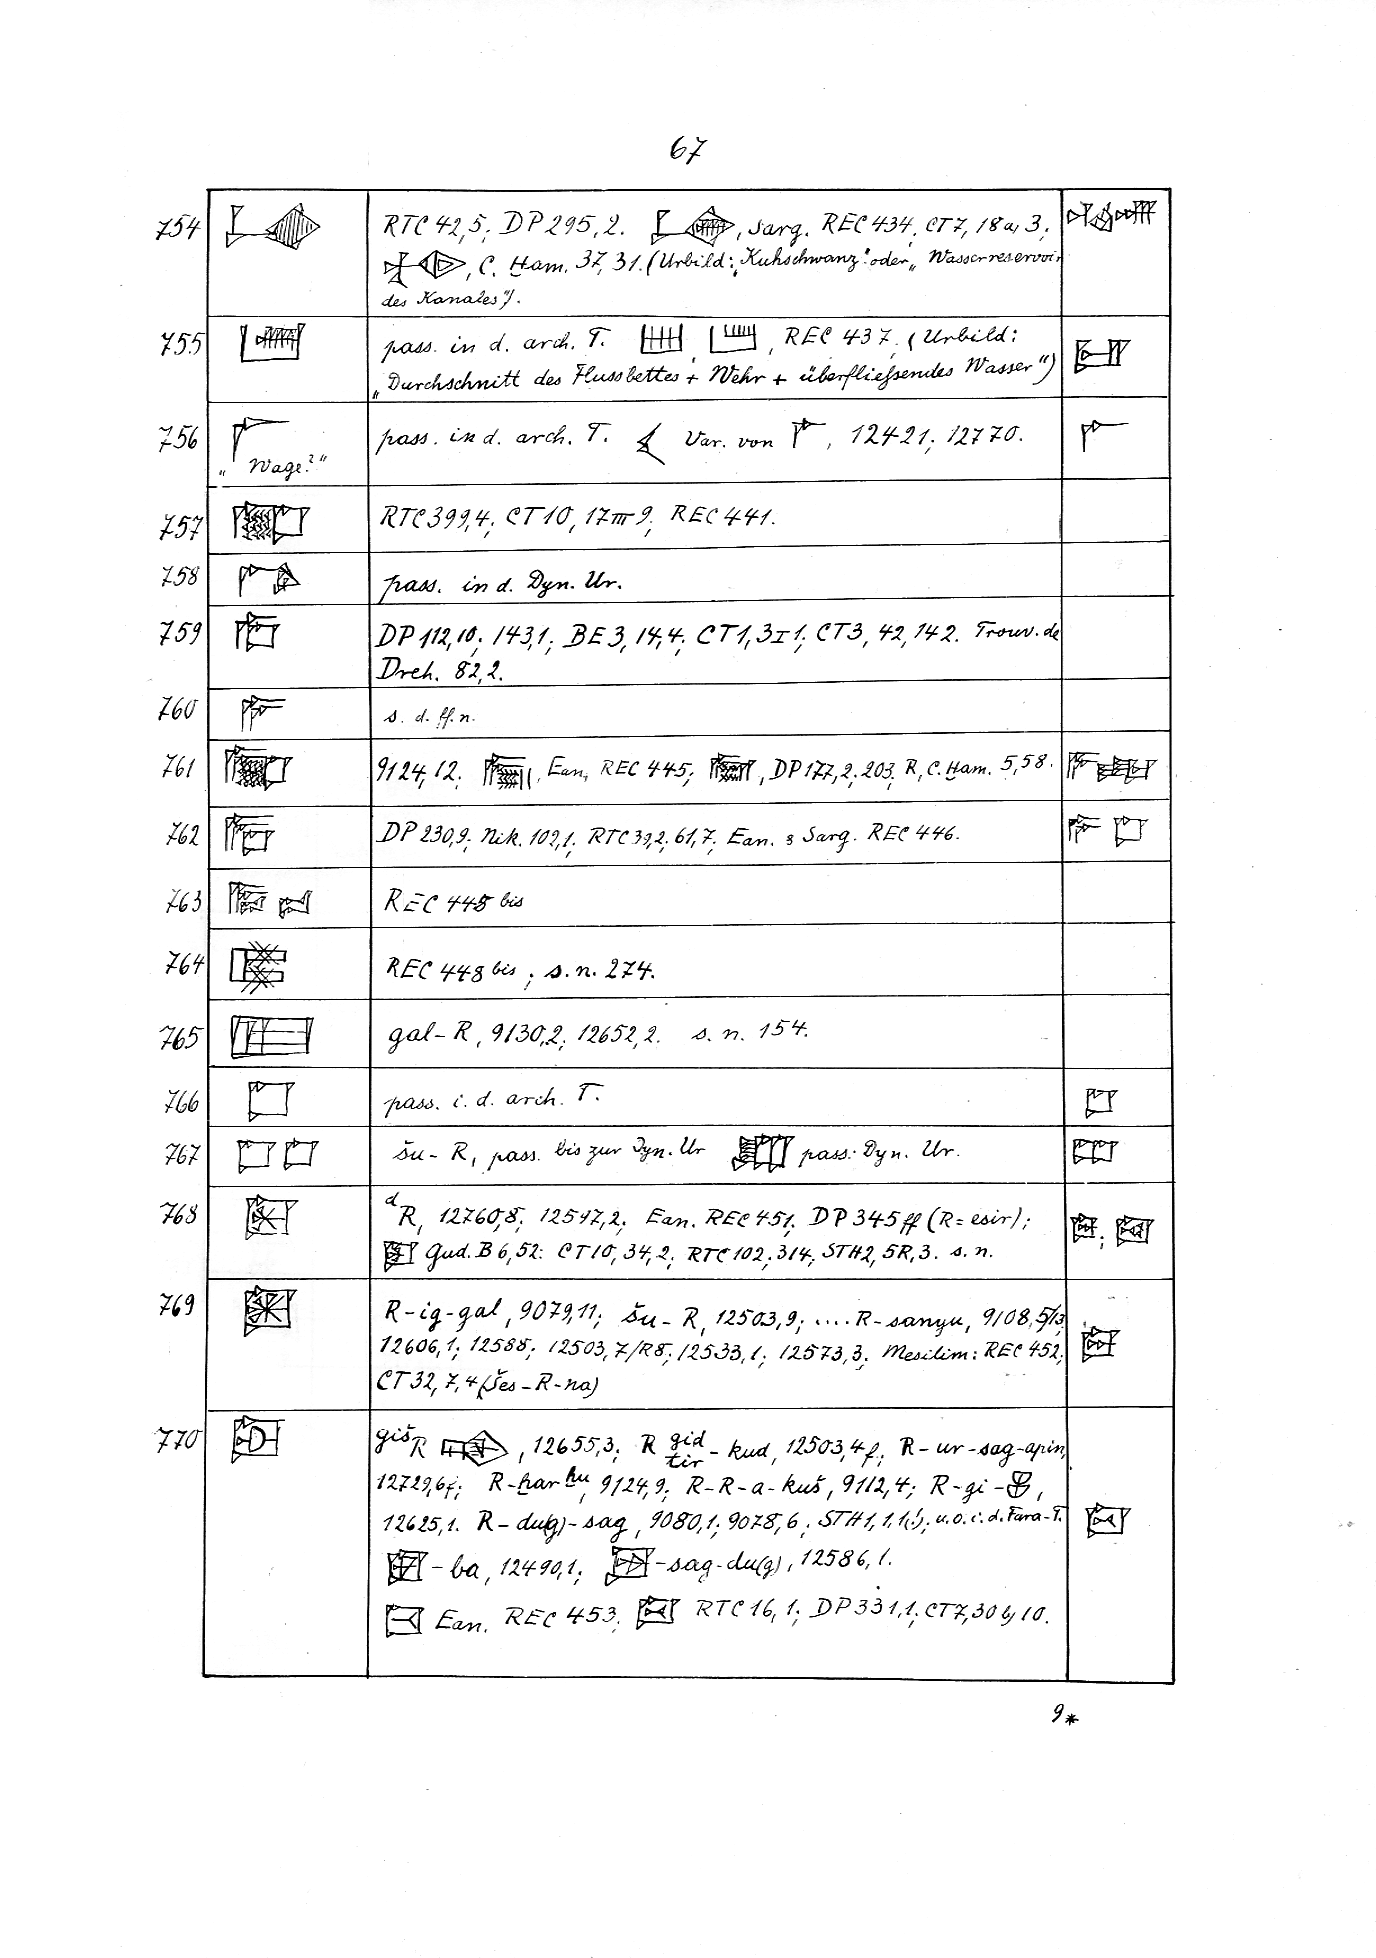 67
754 RTC 42,5; DP 295,2. , Sarg. REC 434, CT 7, 18a, 3;
, C. Ham. 37, 31. (Urbild: „Kuhschwanz“ oder „Wasserreservoir
des Kanales“).
755 pass. in d. arch. T. , , REC 437. (Urbild:
„Durchschnitt des Flussbettes + Wehr + überfließendes Wasser“)
756 pass. in d. arch. T. Var. von , 12421; 12770.
„Wage?“
757 RTC 399,4; CT 10, 17 III 9; REC 441.
758 pass. in d. Dyn. Ur.
759 DP 112,10; 143,1; BE 3, 14,4; CT 1, 3 I 1; CT 3, 42, 142. Trouv. de
Dreh. 82,2.
760 s. d. ff. n.
761 9124,12; , Ean, REC 445; , DP 177,2; 203 R, C. Ham. 5,58.
762 DP 230,9; Nik. 102,1; RTC 39,2; 61,7; Ean. & Sarg. REC 446.
763 REC 445 bis
764 REC 448 bis ; s. n. 274.
765 gal-R, 9130,2; 12652,2. s. n. 154.
766 pass. i. d. arch. T.
767 šu-R, pass. bis zur Dyn. Ur pass. Dyn. Ur.
768 d R, 12760,8; 12547,2; Ean. REC 451; DP 345 ff (R = esir);
Gud. B 6,52: CT 10, 34,2; RTC 102; 314; STH 2, 5R, 3. s. n.
769 R-ig-gal, 9079,11; šu-R, 12503,9; .... R-sanyu, 9108,5/13;
12606,1; 12588; 12503,7/R8; 12533,1; 12573,3; Mesilim: REC 452;
CT 32, 7, 4 (šes-R-na)
770 giš R , 12655,3; R gid tir-kud, 12503,4f; R-ur-sag-apin,
12729,6f; R-ḫar ḫu, 9124,9; R-R-a-kuš, 9112,4; R-gi- ,
12625,1. R-du(g)-sag, 9080,1; 9078,6; STH 1, 1, 1(!); u. o. i. d. Fara-T.
-ba, 12490,1; -sag-du(g), 12586,1.
Ean. REC 453; RTC 16,1; DP 331,1; CT 7, 30 b, 10.
9*